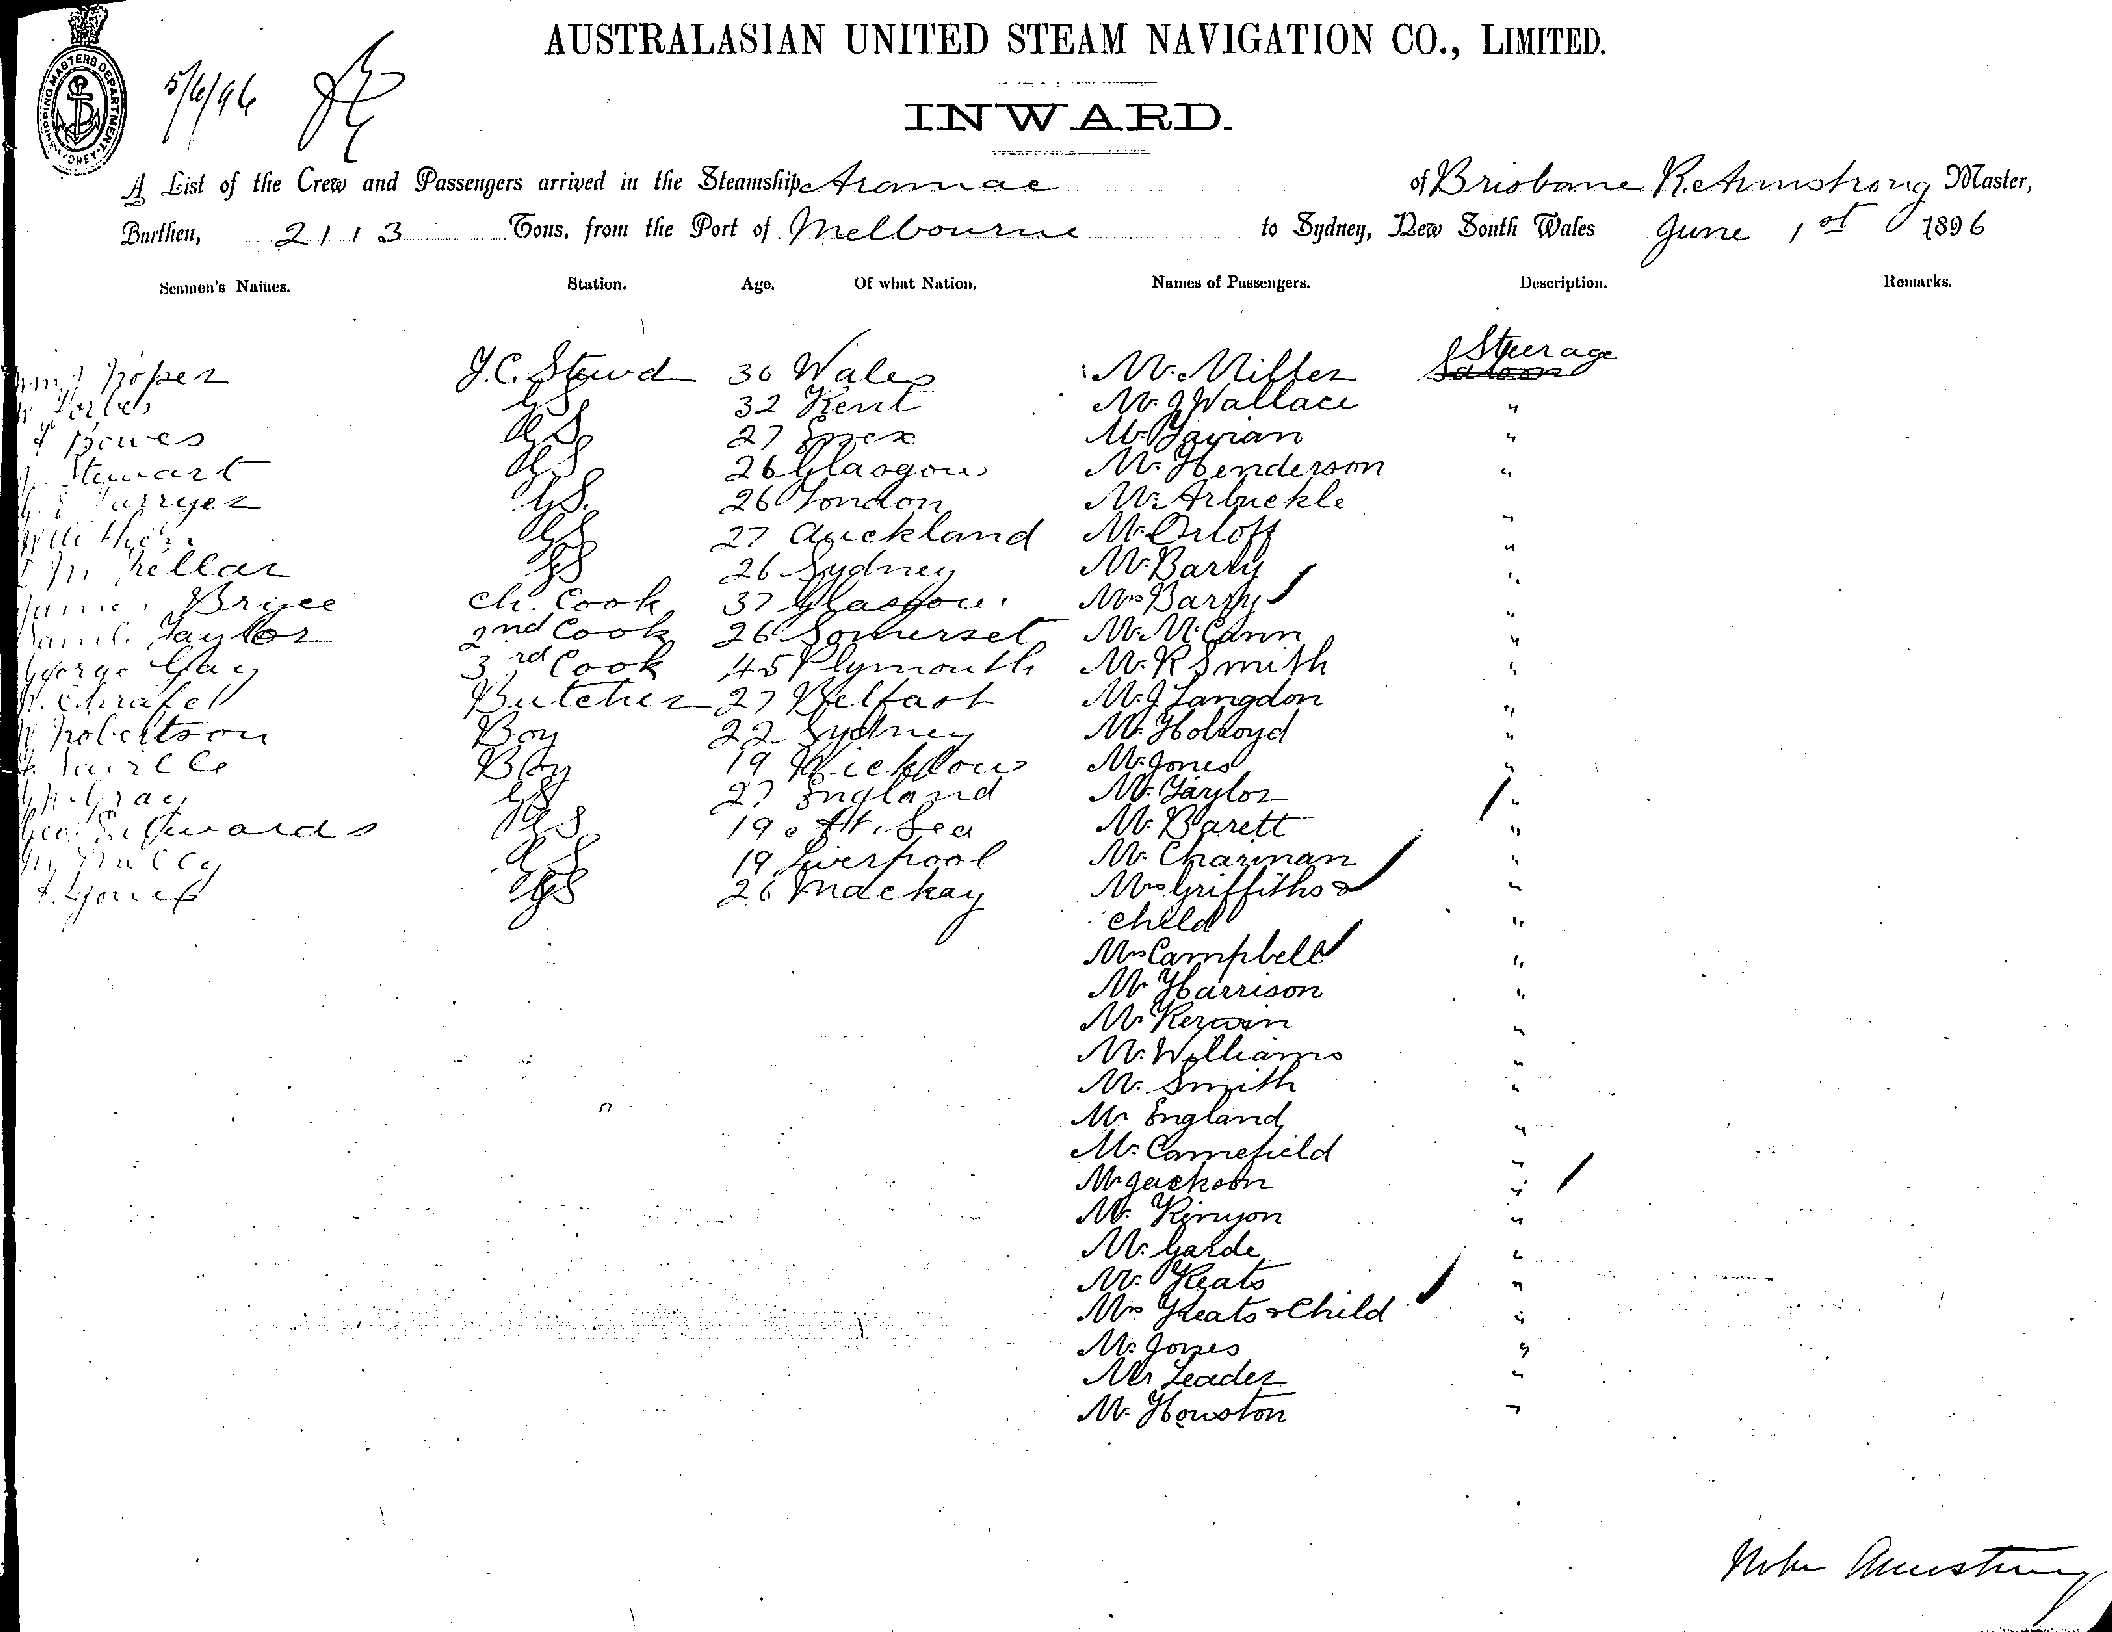 AUSTRALASIAN UNITED STEAM NAVIGATION CO., LIMITED.
5/6/96
INWARD.
A List of the Crew and Passengers arrived in the Steamship Aramac of Brisbane R. Armstrong Master,
Burthen, 2113 Tons, from the Port of Melbourne to Sydney, New South Wales June 1st 1896
Seamen's Names. Station. Age. Of what Nation. Names of Passengers. Description. Remarks.
Roper F.C. Stewd 30 Wales Mr. Miller Steerage Saloon
Forbes GS 32 Kent Mr J Wallace "
Bowes GS 27 Essex Mr "
Stewart GS 26 Glasgow Mr. Henderson "
GS. 26 London Mr Arbuckle
GS 27 Auckland Mr Orloff "
McKellar GS 26 Sydney Mr Barry "
James Bryce Ch. Cook 37 Glasgow. Mrs Barry "
Taylor 2nd Cook 26 Somerset Mr McCann "
George Gay 3rd Cook 45 Plymouth Mr. R Smith "
Butcher 27 Belfast Mr. J Langdon "
Robertson Boy 22 Sydney Mr. Holroyd "
Boy 19 Wicklow Mr Jones "
Gray GS 27 England Mr. Taylor "
Geo. Edwards GS 19 At Sea Mr. Barett "
GS 19 Liverpool Mr. Chairman "
Jones GS 26 Mackay Mrs Griffiths & "
Child "
Mrs Campbell "
Mr Harrison "
Mr Kerwin "
Mr. Williams "
Mr. Smith "
Mr England "
Mr. Camefield "
Mr Jackson "
Mr. Kenyon "
Mr. Garde "
Mr. Keats "
Mrs Keats & Child "
Mr Jones "
Mr Leader "
Mr. Houston "
Armstrong